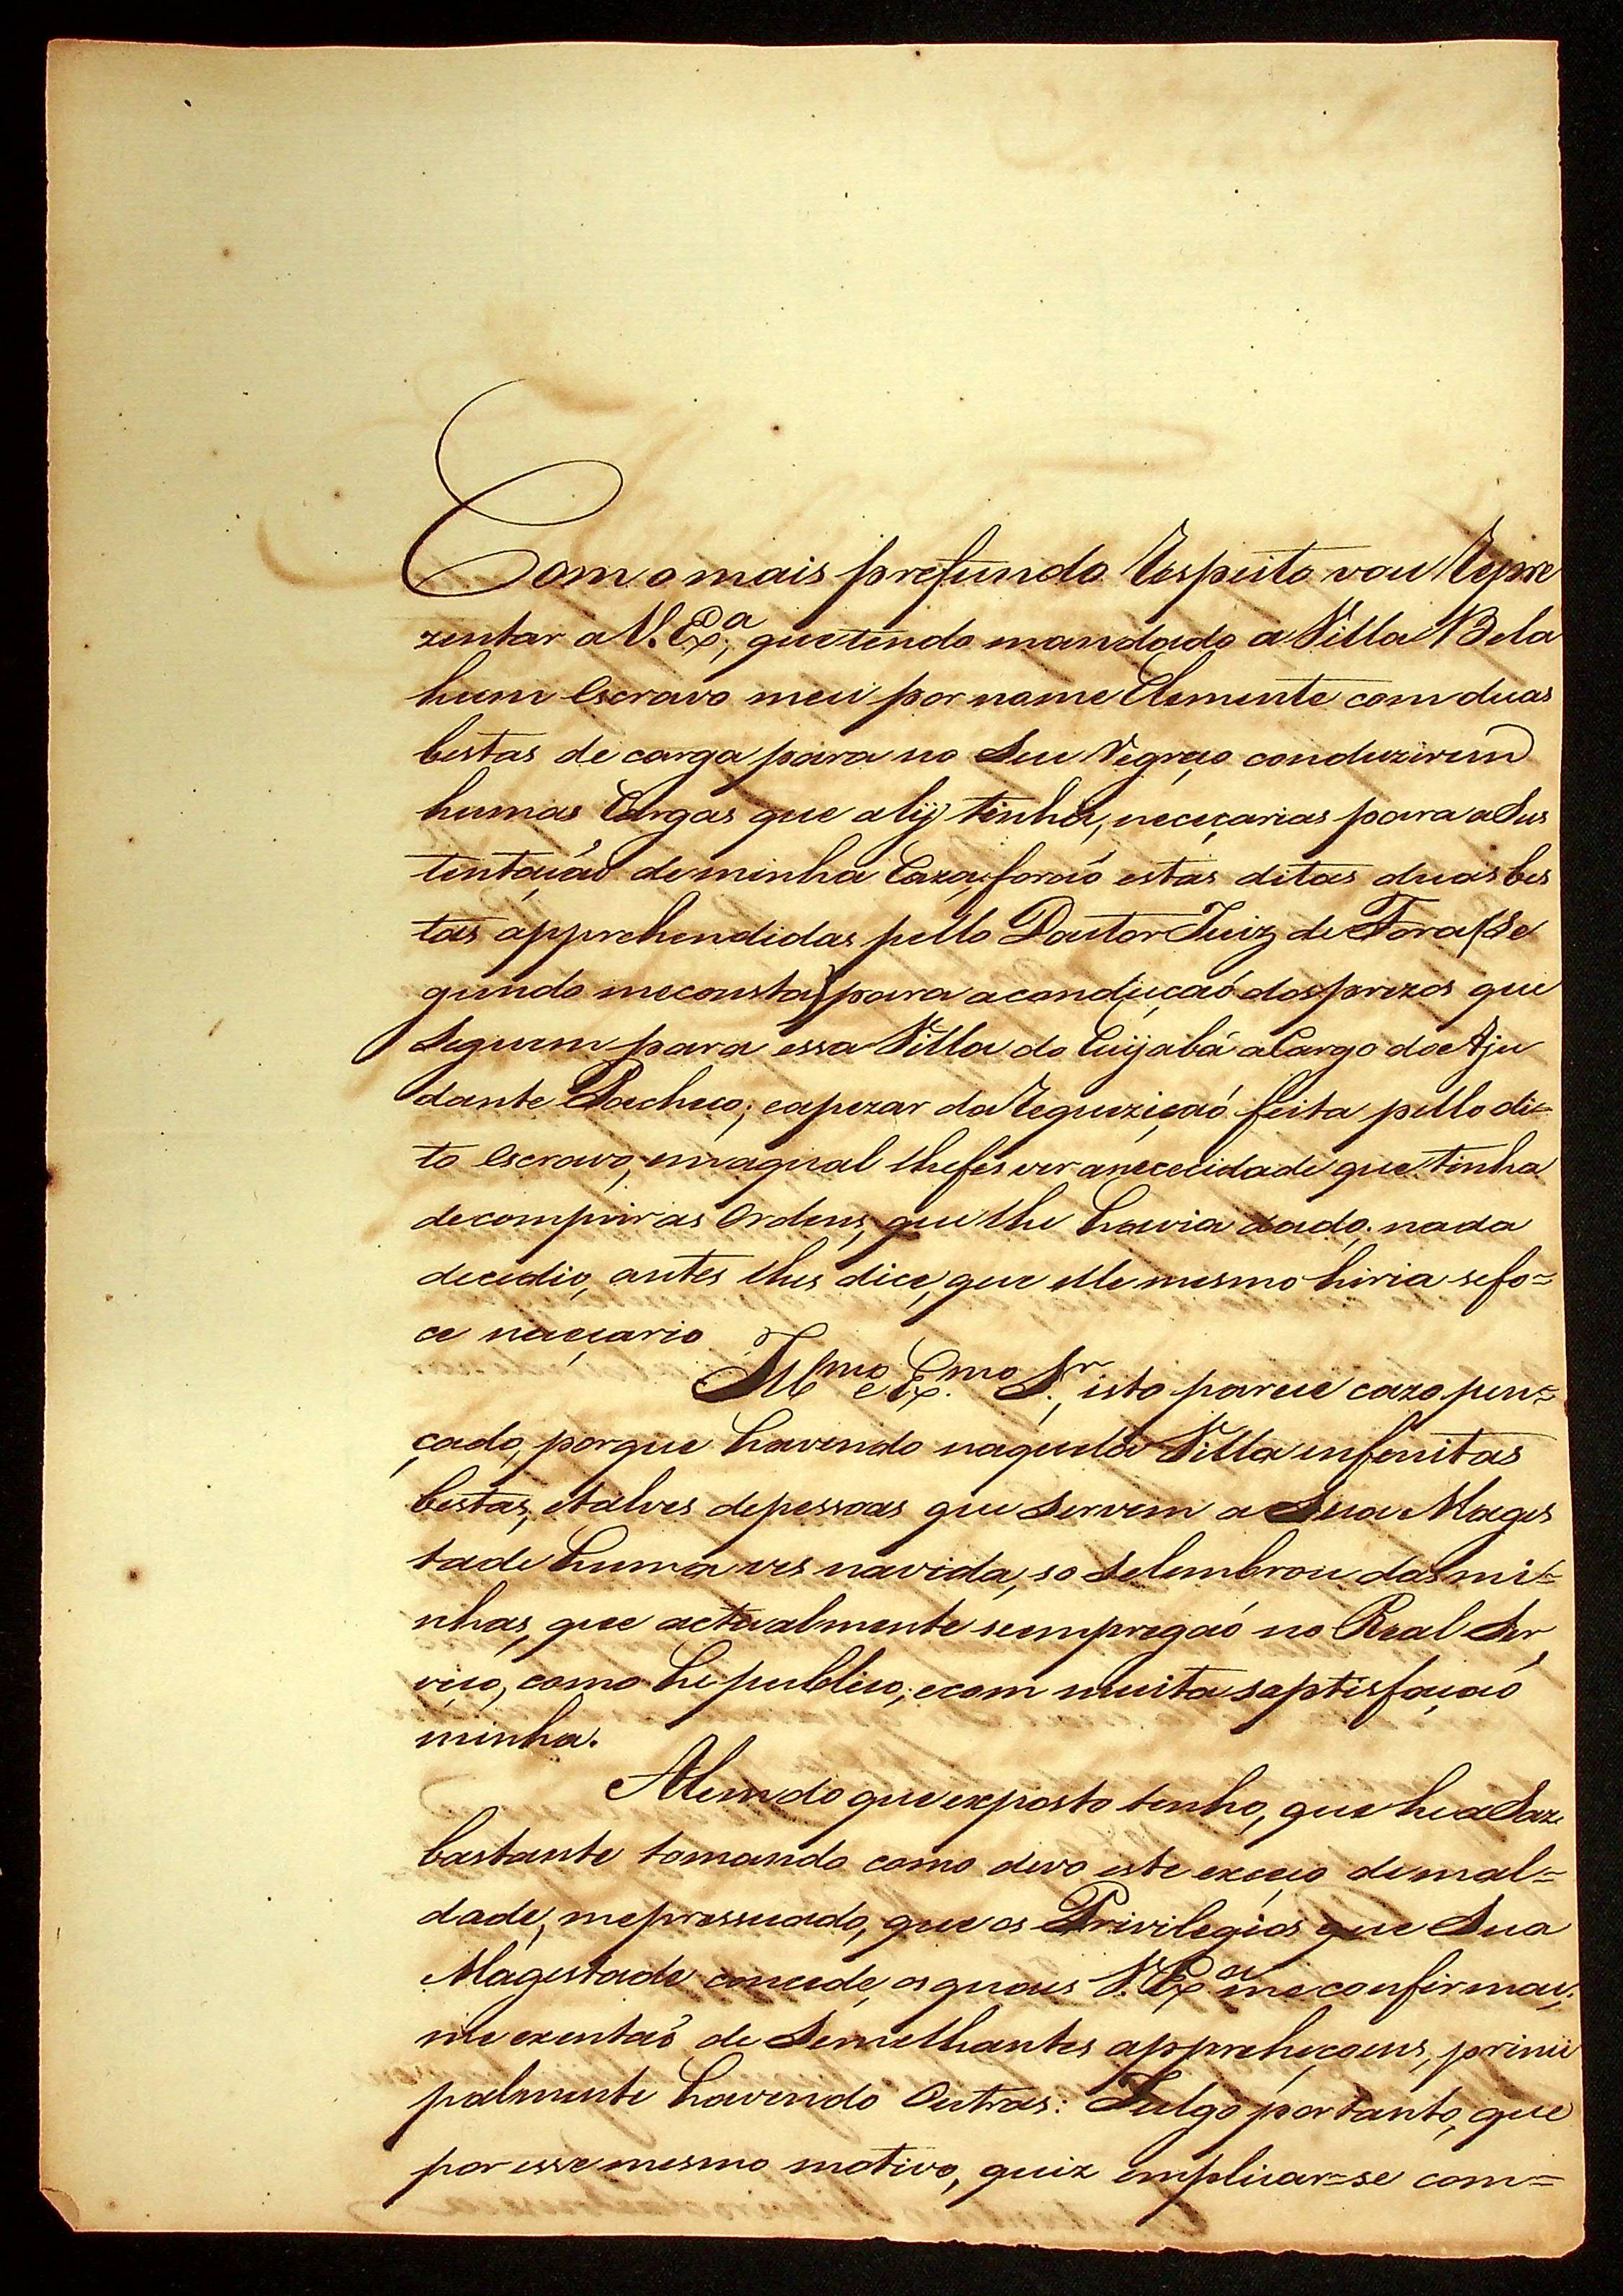 Com o mais profundo Respeito vou Repre
zentar a V. Ex.ª, que tendo mandado a Villa Bela
hum Escravo meu por nome Clemente com duas
bestas de carga para no Seu Regreço conduzirem
humas Cargas que alÿ tinha, nececarias para a Sus
tentaçaõ de minha Caza, foraõ estas ditas duas bes
tas apprehendidas pello Doutor Juiz de Fora (Se
gundo me consta) para a conduçaõ dos prezos que
Seguem para essa Villa do Cuyabá a Cargo do Aju
dante Pacheco; e apezar da Requiziçaõ feita pello di=
to Escravo, em a qual lhe fes ver a nececidade que tinha
de comprir as Ordens, que lhe havia dado, nada
decedio, antes lhes dice, que elle mesmo hiria se fo=
ce neceçario
Ill.mo e Ex.mo S.r, isto parece cazo pen=
çado, porque havendo naquela Villa enfenitas
bestas, e talves de pessoas que Servem a Sua Mages
tade huma ves na vida, so Se lembrou das mi=
nhas, que actualmente se empregaõ no Real Ser
viço, como he publico, e com muita saptisfaçaõ
minha.
Alem do que exposto tenho, que he a Saz
bastante tomando como devo este exceço de mal=
dade, me pressuado, que os Privilegios que Sua
Magestade concede, os quaes V. Ex.ª me confirmou,
me exentaõ de Semelhantes appreheçoens, princi
palmente havendo Outras: Julgo portanto, que
por esse mesmo motivo, quiz emplicar=se com=